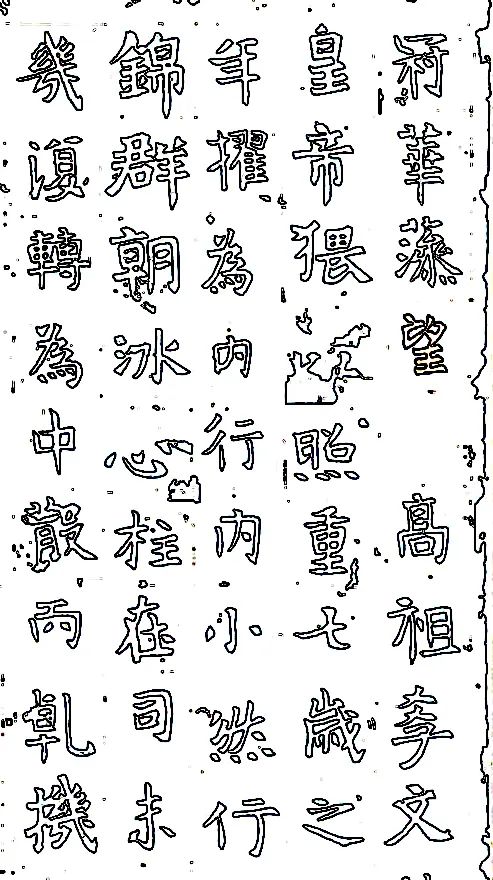 華望高祖孝文
皇帝猥照重七歲之
年擢為内行内小然行
錦群朝冰心柱在司未
幾復轉為中散兩機